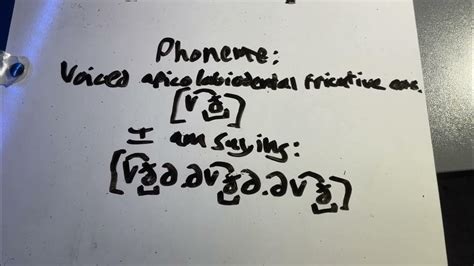 Phoneme:
Voiced apico labiodental fricative
[v͡ð̺]
I am saying:
[v͡ð̺ə.əv͡ð̺ə.əv͡ð̺]